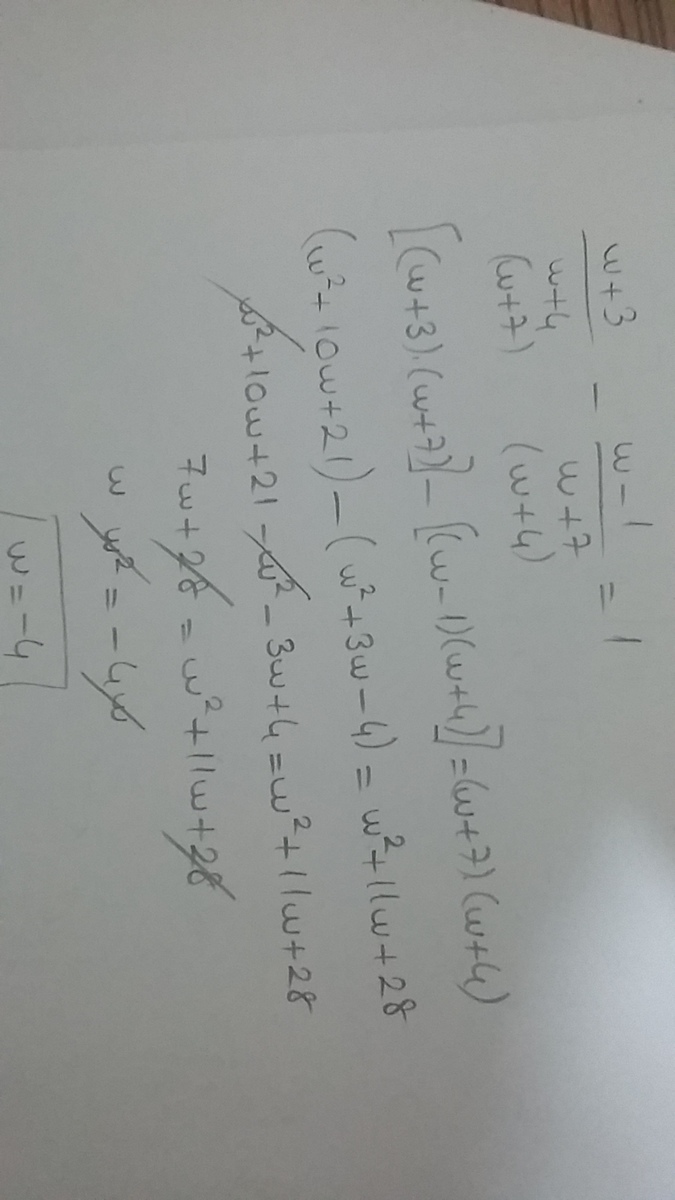 w+3/w+4 - w-1/w+7 = 1
(w+7) (w+4)
[(w+3).(w+7)] - [(w-1)(w+4)] = (w+7)(w+4)
(w²+10w+21) - (w²+3w-4) = w²+11w+28
w²+10w+21 - w² - 3w+4 = w²+11w+28
7w+28 = w²+11w+28
w w² = -4w
w = -4